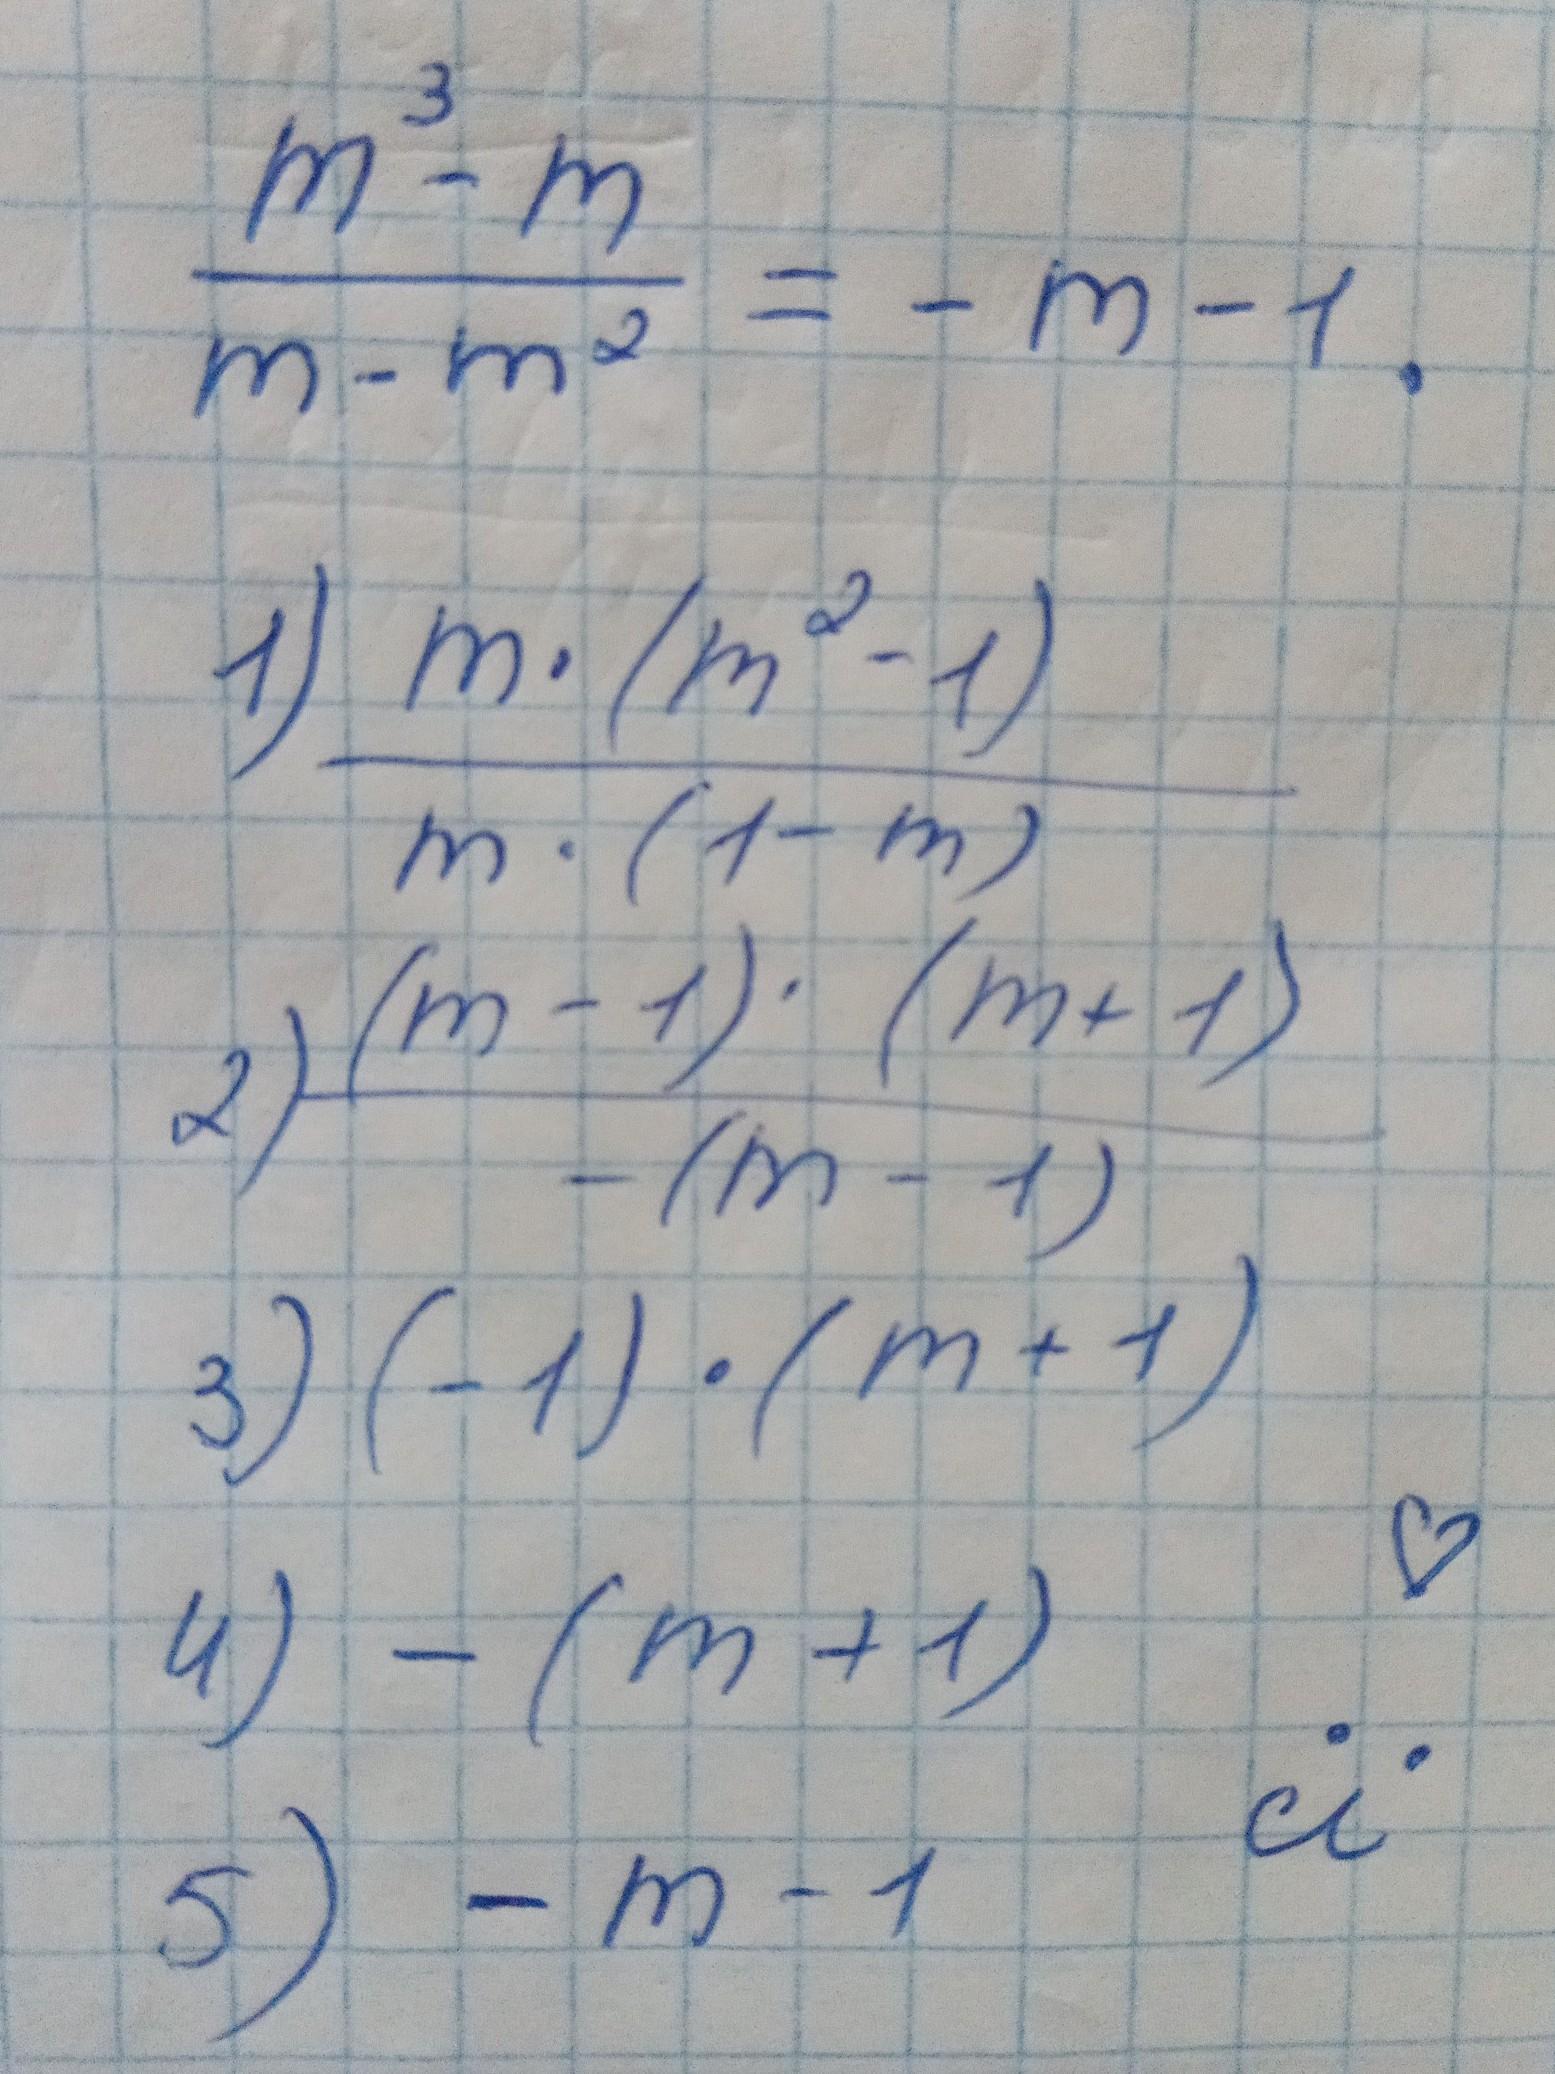 m³ - m
──── = - m - 1.
m - m²
1) m · (m² - 1)
────
m · (1 - m)
2) (m - 1) · (m + 1)
────
- (m - 1)
3) (- 1) · (m + 1)
4) - (m + 1)
5) - m - 1